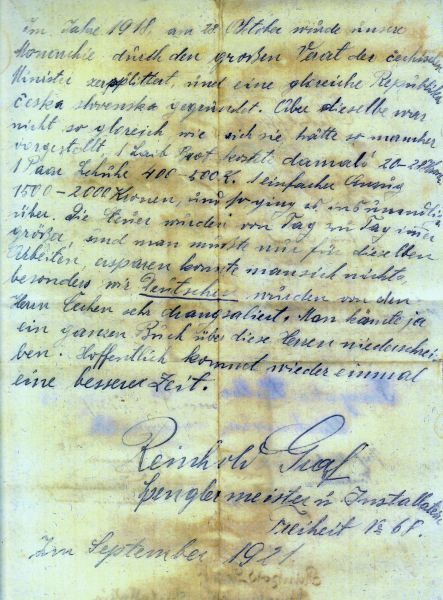 Im Jahre 1918, am 28. Oktober wurde unsere
Monarchie durch den großen Verat der čechischen
Minister zersplittert, und eine gloreiche Republik
česka slovenska gegründet. Aber dieselbe war
nicht so gloreich wie sich sie hätte so mancher
vorgestellt 1 Laib Brot kostete damals 20-28
1 Paar Schuhe 400-500 K. 1 einfacher Anzug
1500-2000 Kronen, und so ging es
über. Die Steuer wurden von Tag zu Tag immer
größer, und man musste nur für dieselben
Arbeiten, ersparen konnte man sich nichts.
besonders wir Deutsche wurden von den
Herrn Čechen sehr drangsaliert. Man könnte ja
ein ganzen Buch über diese Herren niederschrei
ben. Hoffentlich kommt wieder einmal
eine besserer Zeit.
Reinhold Graf
Spenglermeister u Installateur
Freiheit № 68.
Im September 1921